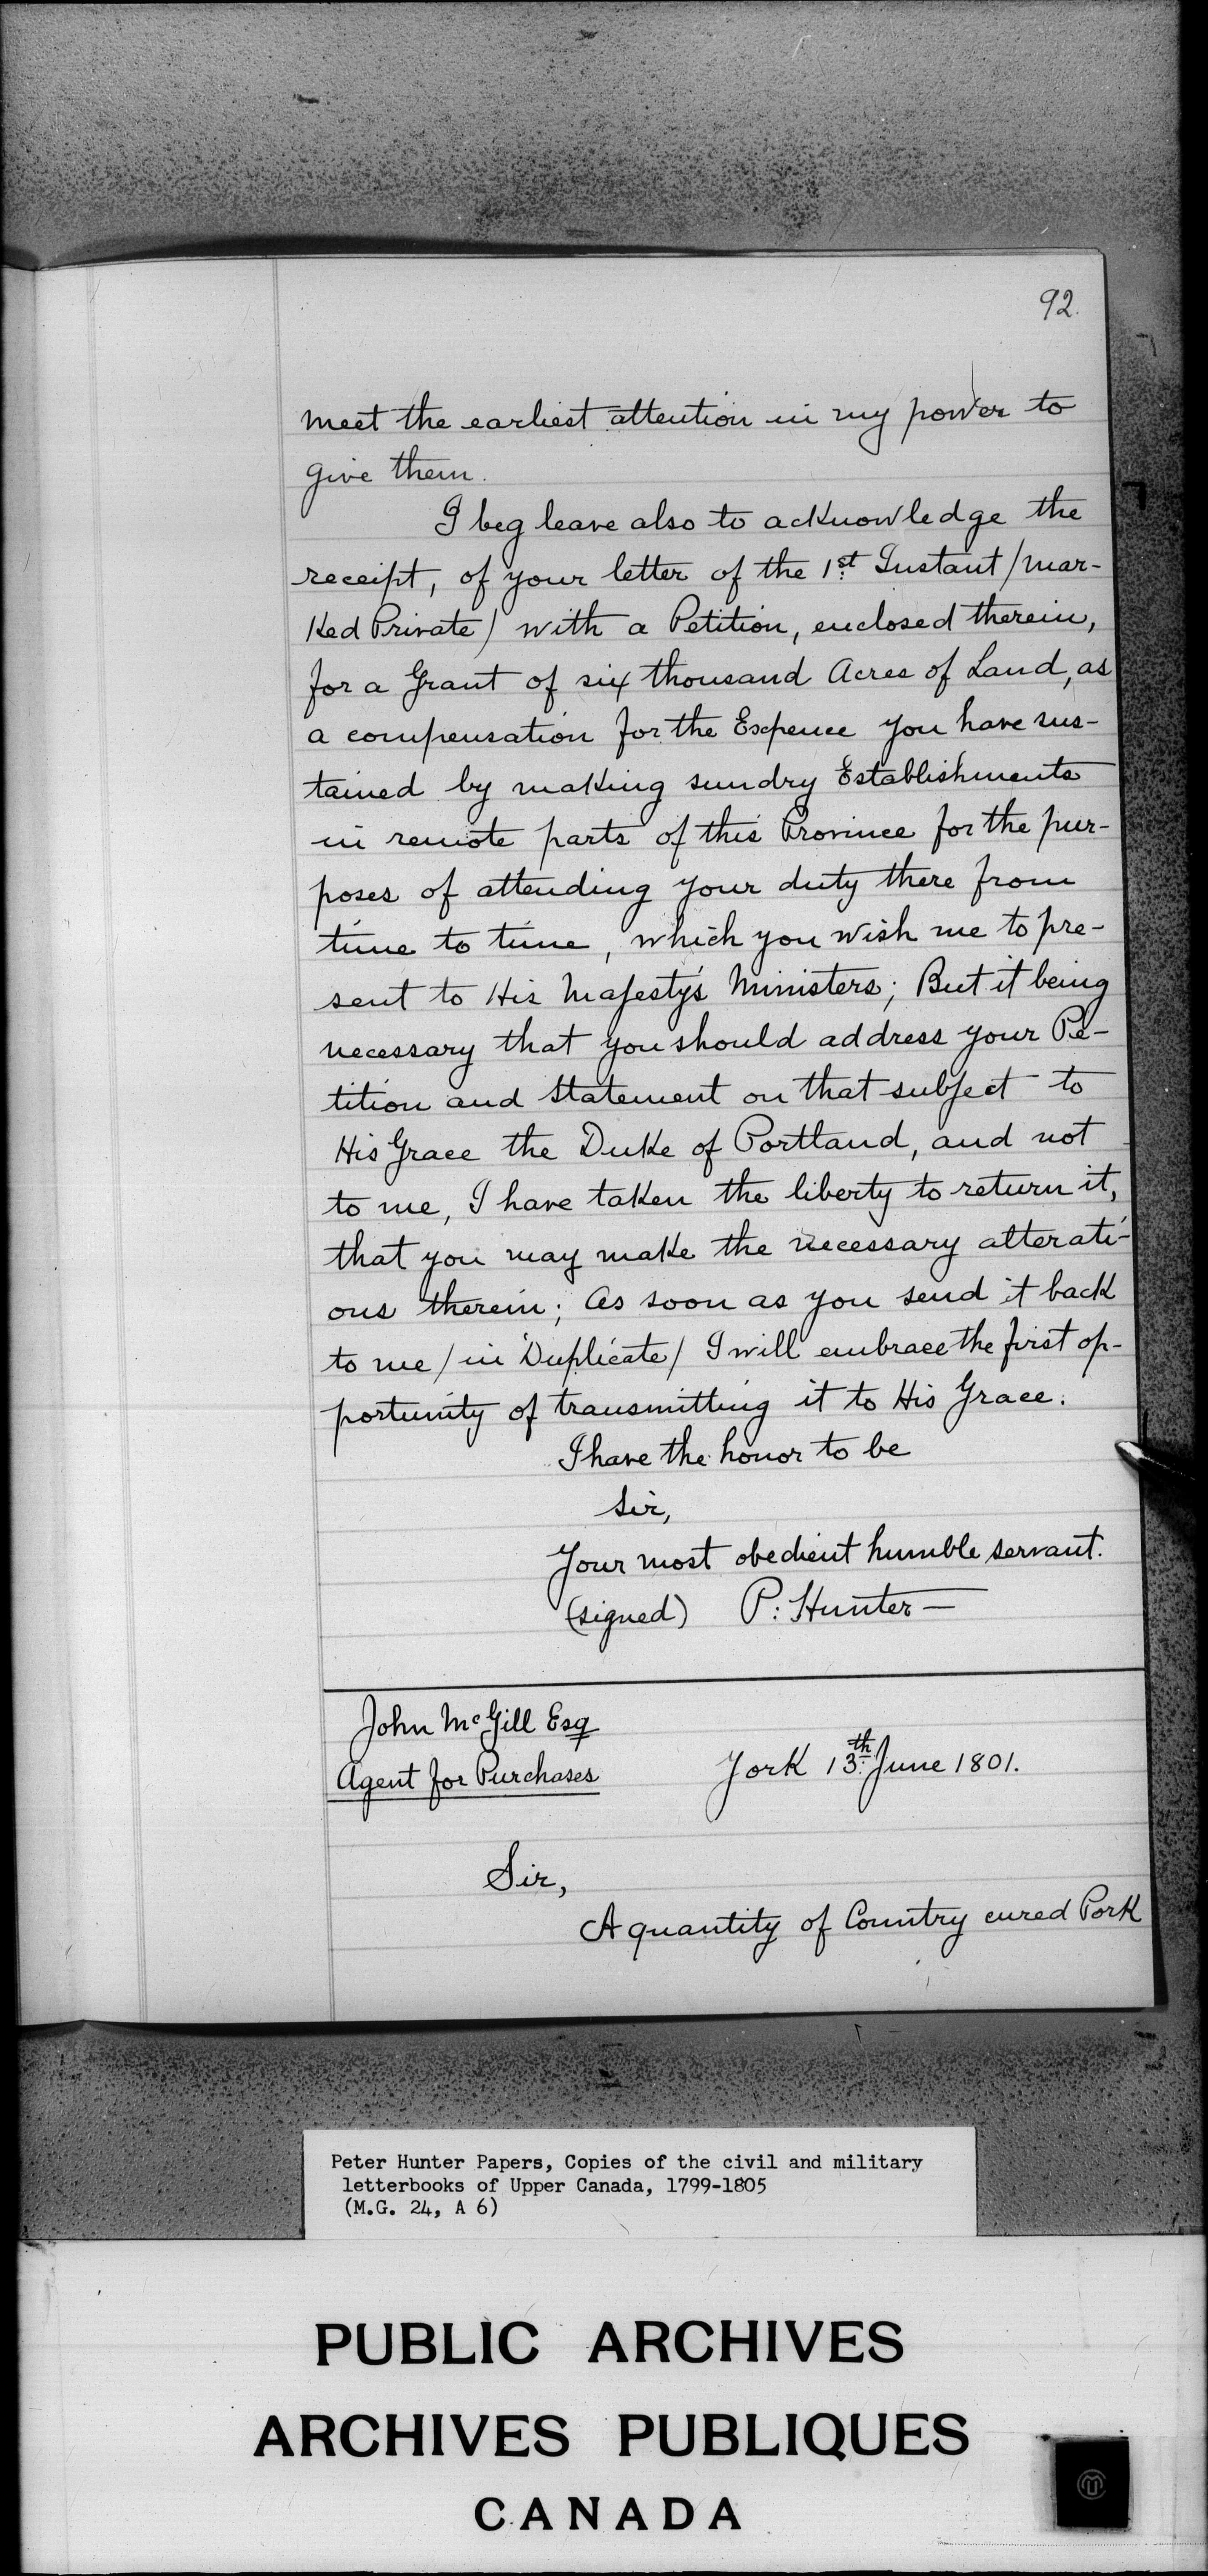 92.
meet the earliest attention in my power to
give them.
I beg leave also to acknowledge the
receipt, of your letter of the 1st Instant / mar-
ked Private / with a Petition, enclosed therein,
for a Grant of six thousand Acres of Land, as
a compensation for the Expence you have sus-
tained by making sundry Establishments
in remote parts of this Province for the pur-
poses of attending your duty there from
time to time, which you wish me to pre-
sent to His Majesty's Ministers; But it being
necessary that you should address your Pe-
tition and Statement on that subject to
His Grace the Duke of Portland, and not
to me, I have taken the liberty to return it,
that you may make the necessary alterati-
ons therein; As soon as you send it back
to me / in Duplicate / I will embrace the first op-
portunity of transmitting it to His Grace.
I have the honor to be
Sir,
Your most obedient humble servant.
(signed) P: Hunter —
John McGill Esq
Agent for Purchases
York 13th June 1801.
Sir,
A quantity of Country cured Pork
Peter Hunter Papers, Copies of the civil and military
letterbooks of Upper Canada, 1799-1805
(M.G. 24, A 6)
PUBLIC ARCHIVES
ARCHIVES PUBLIQUES
CANADA